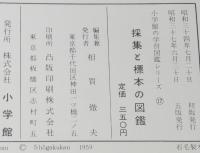 昭和三十四年七月二十日 初版発行
昭和三十七年六月二十日 五版発行
小学館の学習図鑑シリーズ ⑰
採集と標本の図鑑
定価 三五〇円
編集兼発行者 相賀徹夫
東京都千代田区神田一ツ橋二ノ五
印刷所 凸版印刷株式会社
東京都板橋区志村町五
発行所 株式会社 小学館
© Shōgakukan 1959